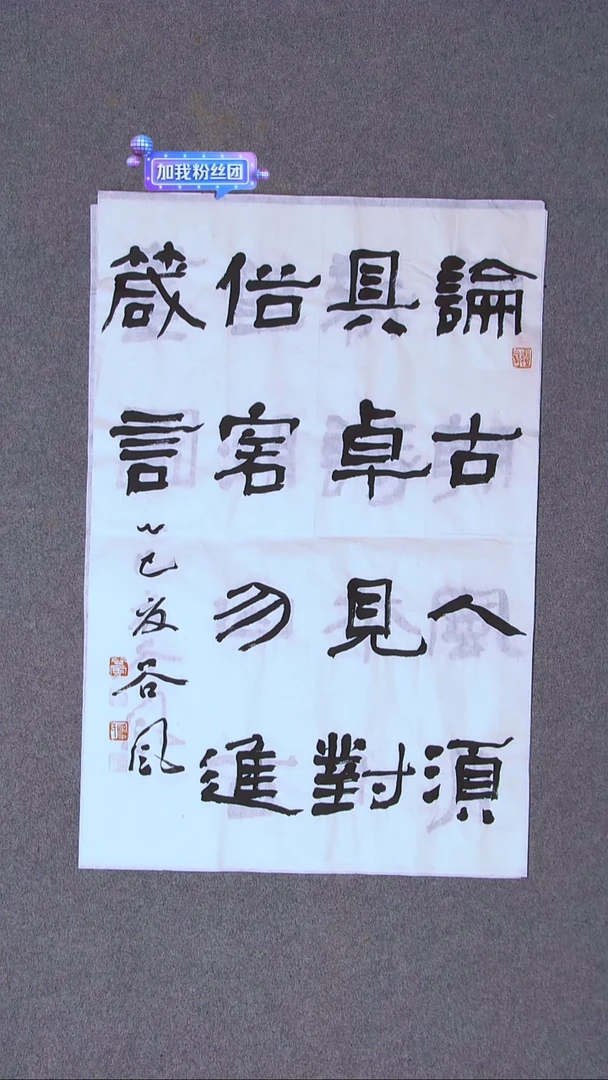 加我粉丝团
論古人須
具卓見對
俗客勿進
箴言
乙巳夏谷风